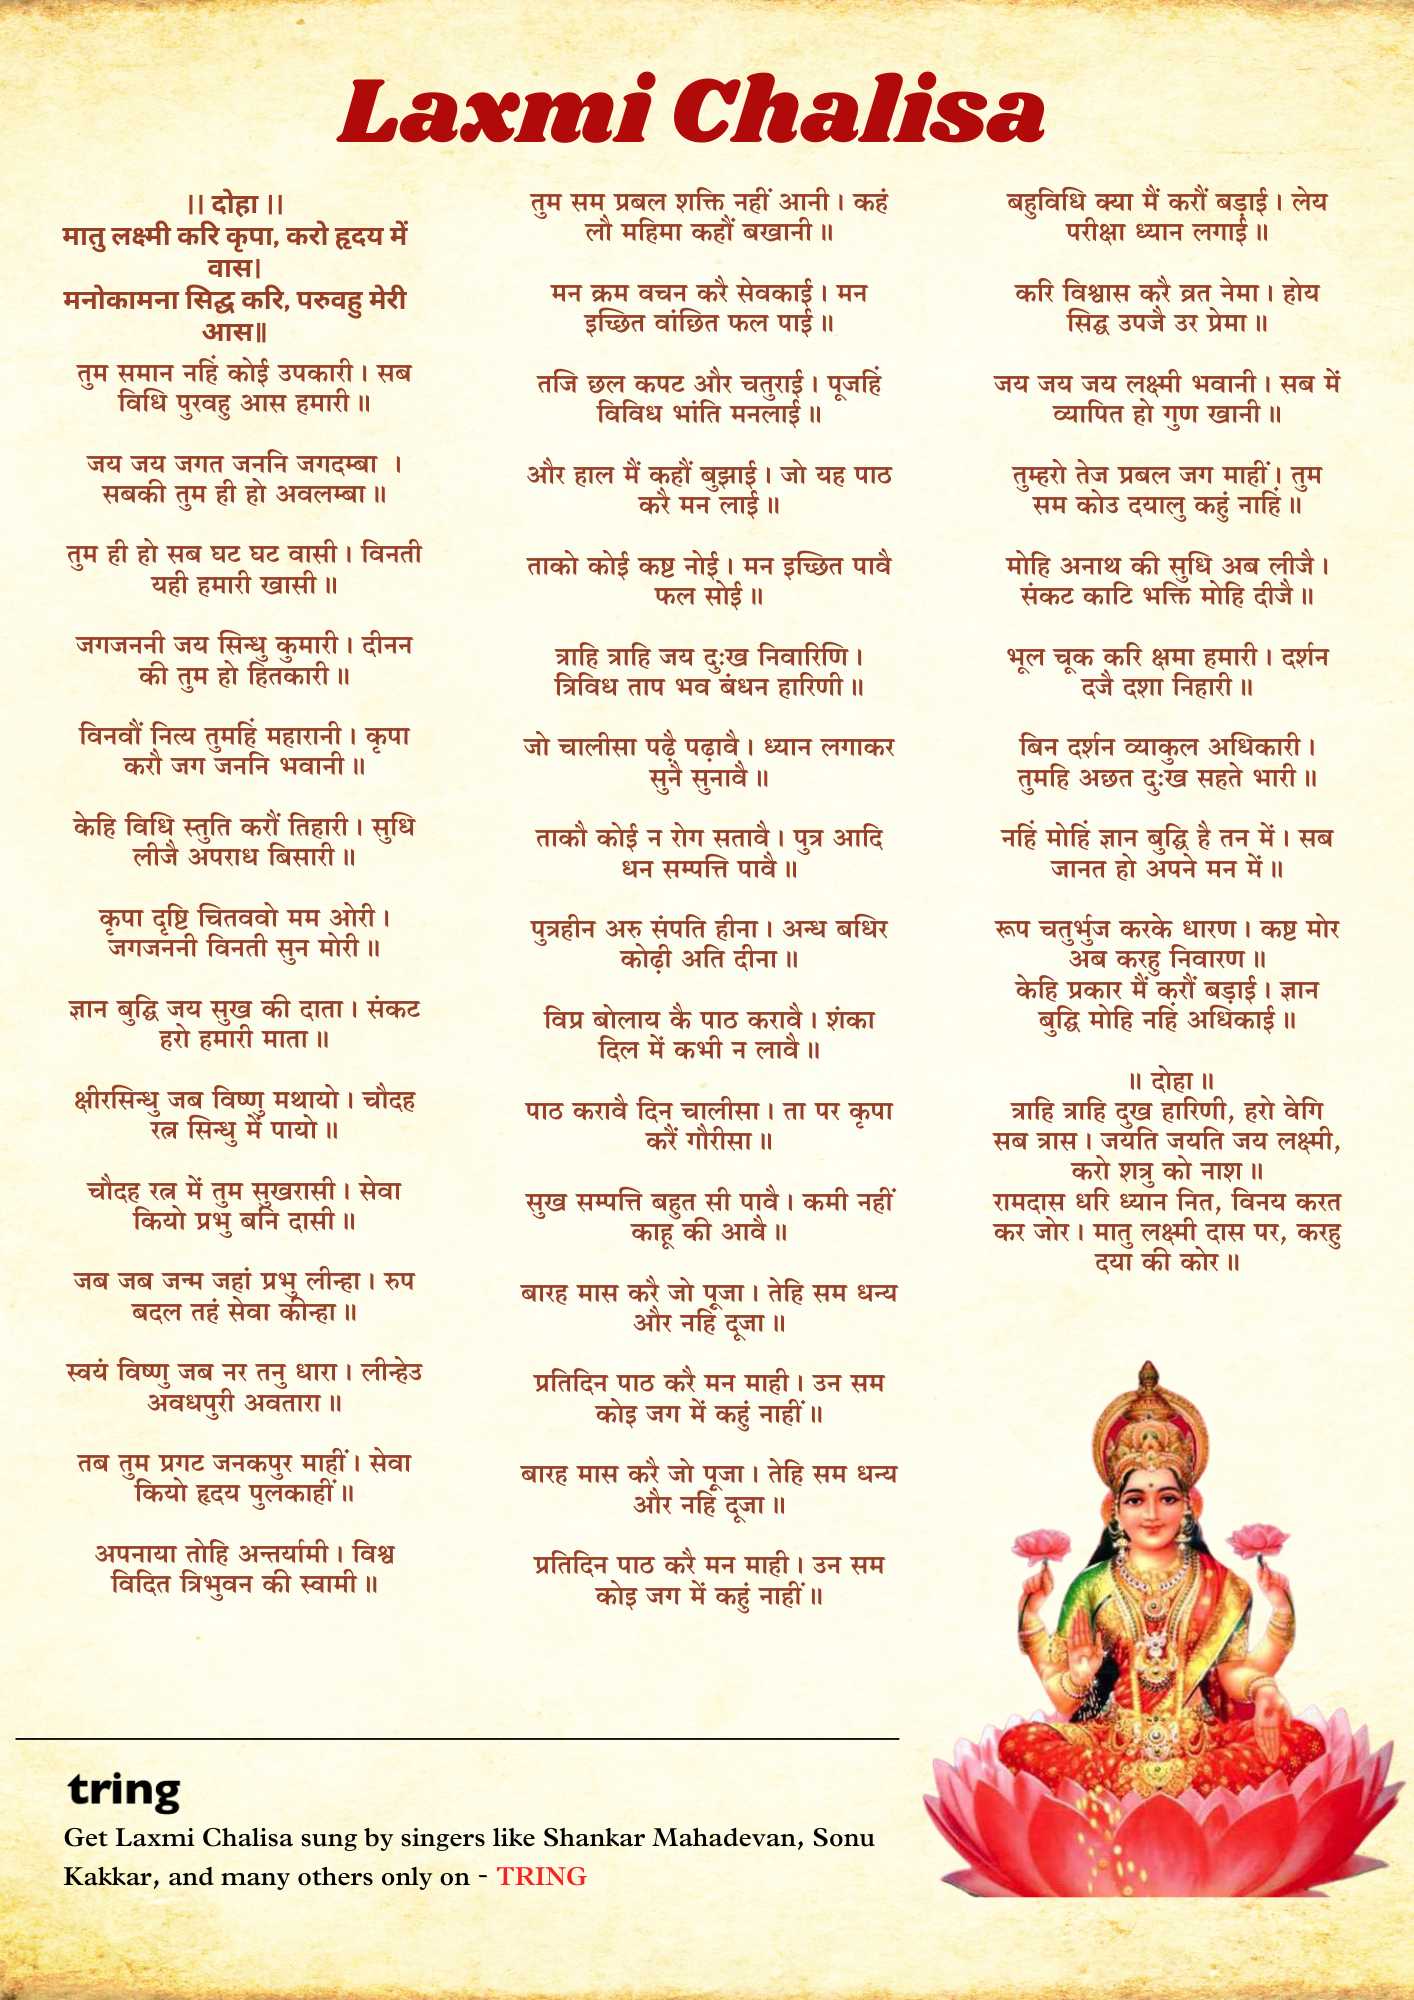 Laxmi Chalisa
।। दोहा ।।
मातु लक्ष्मी करि कृपा, करो हृदय में
वास।
मनोकामना सिद्घ करि, परुवहु मेरी
आस॥
तुम समान नहिं कोई उपकारी। सब
विधि पुरवहु आस हमारी॥
जय जय जगत जननि जगदम्बा ।
सबकी तुम ही हो अवलम्बा॥
तुम ही हो सब घट घट वासी। विनती
यही हमारी खासी॥
जगजननी जय सिन्धु कुमारी। दीनन
की तुम हो हितकारी॥
विनवौं नित्य तुमहिं महारानी। कृपा
करौ जग जननि भवानी॥
केहि विधि स्तुति करौं तिहारी। सुधि
लीजै अपराध बिसारी॥
कृपा दृष्टि चितववो मम ओरी।
जगजननी विनती सुन मोरी॥
ज्ञान बुद्घि जय सुख की दाता। संकट
हरो हमारी माता॥
क्षीरसिन्धु जब विष्णु मथायो। चौदह
रत्न सिन्धु में पायो॥
चौदह रत्न में तुम सुखरासी। सेवा
कियो प्रभु बनि दासी॥
जब जब जन्म जहां प्रभु लीन्हा। रुप
बदल तहं सेवा कीन्हा॥
स्वयं विष्णु जब नर तनु धारा। लीन्हेउ
अवधपुरी अवतारा॥
तब तुम प्रगट जनकपुर माहीं। सेवा
कियो हृदय पुलकाहीं॥
अपनाया तोहि अन्तर्यामी। विश्व
विदित त्रिभुवन की स्वामी॥
तुम सम प्रबल शक्ति नहीं आनी। कहं
लौ महिमा कहौं बखानी॥
मन क्रम वचन करै सेवकाई। मन
इच्छित वांछित फल पाई॥
तजि छल कपट और चतुराई। पूजहिं
विविध भांति मनलाई॥
और हाल मैं कहौं बुझाई। जो यह पाठ
करै मन लाई॥
ताको कोई कष्ट नोई। मन इच्छित पावै
फल सोई॥
त्राहि त्राहि जय दुःख निवारिणि।
त्रिविध ताप भव बंधन हारिणी॥
जो चालीसा पढ़ै पढ़ावै। ध्यान लगाकर
सुनै सुनावै॥
ताकौ कोई न रोग सतावै। पुत्र आदि
धन सम्पत्ति पावै॥
पुत्रहीन अरु संपति हीना। अन्ध बधिर
कोढ़ी अति दीना॥
विप्र बोलाय कै पाठ करावै। शंका
दिल में कभी न लावै॥
पाठ करावै दिन चालीसा। ता पर कृपा
करैं गौरीसा॥
सुख सम्पत्ति बहुत सी पावै। कमी नहीं
काहू की आवै॥
बारह मास करै जो पूजा। तेहि सम धन्य
और नहिं दूजा॥
प्रतिदिन पाठ करै मन माही। उन सम
कोइ जग में कहुं नाहीं॥
बारह मास करै जो पूजा। तेहि सम धन्य
और नहिं दूजा॥
प्रतिदिन पाठ करै मन माही। उन सम
कोइ जग में कहुं नाहीं॥
बहुविधि क्या मैं करौं बड़ाई। लेय
परीक्षा ध्यान लगाई॥
करि विश्वास करै व्रत नेमा। होय
सिद्घ उपजै उर प्रेमा॥
जय जय जय लक्ष्मी भवानी। सब में
व्यापित हो गुण खानी॥
तुम्हरो तेज प्रबल जग माहीं। तुम
सम कोउ दयालु कहुं नाहिं॥
मोहि अनाथ की सुधि अब लीजै।
संकट काटि भक्ति मोहि दीजै॥
भूल चूक करि क्षमा हमारी। दर्शन
दजै दशा निहारी॥
बिन दर्शन व्याकुल अधिकारी।
तुमहि अछत दुःख सहते भारी॥
नहिं मोहिं ज्ञान बुद्घि है तन में। सब
जानत हो अपने मन में॥
रूप चतुर्भुज करके धारण। कष्ट मोर
अब करहु निवारण॥
केहि प्रकार मैं करौं बड़ाई। ज्ञान
बुद्घि मोहि नहिं अधिकाई॥
॥ दोहा॥
त्राहि त्राहि दुख हारिणी, हरो वेगि
सब त्रास। जयति जयति जय लक्ष्मी,
करो शत्रु को नाश॥
रामदास धरि ध्यान नित, विनय करत
कर जोर। मातु लक्ष्मी दास पर, करहु
दया की कोर॥
tring
Get Laxmi Chalisa sung by singers like Shankar Mahadevan, Sonu
Kakkar, and many others only on - TRING